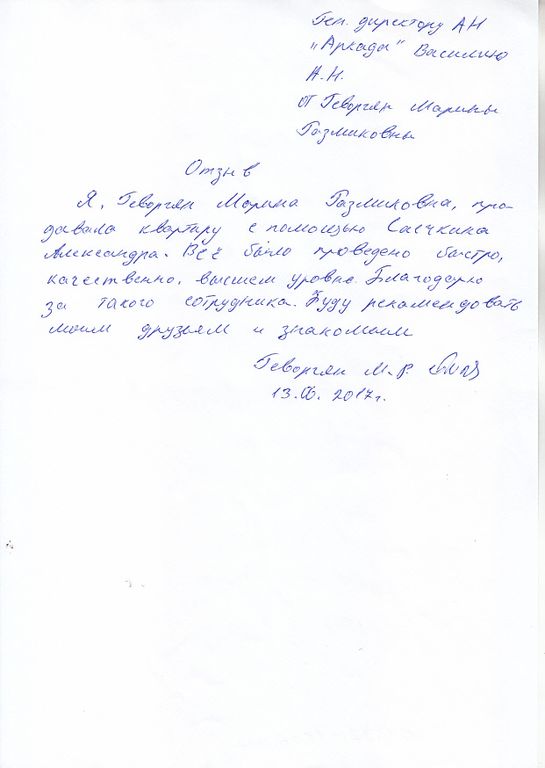 Ген. директору АН
"Аркада" Василию
А.Н.
от Геворгян Марины
Размиковны
Отзыв
Я, Геворгян Марина Размиковна, про-
давала квартиру с помощью Саечкина
Александра. Всё было проведено быстро,
качественно, высшем уровне. Благодарю
за такого сотрудника. Буду рекомендовать
моим друзьям и знакомым
Геворгян М.Р.
13.06. 2017г.